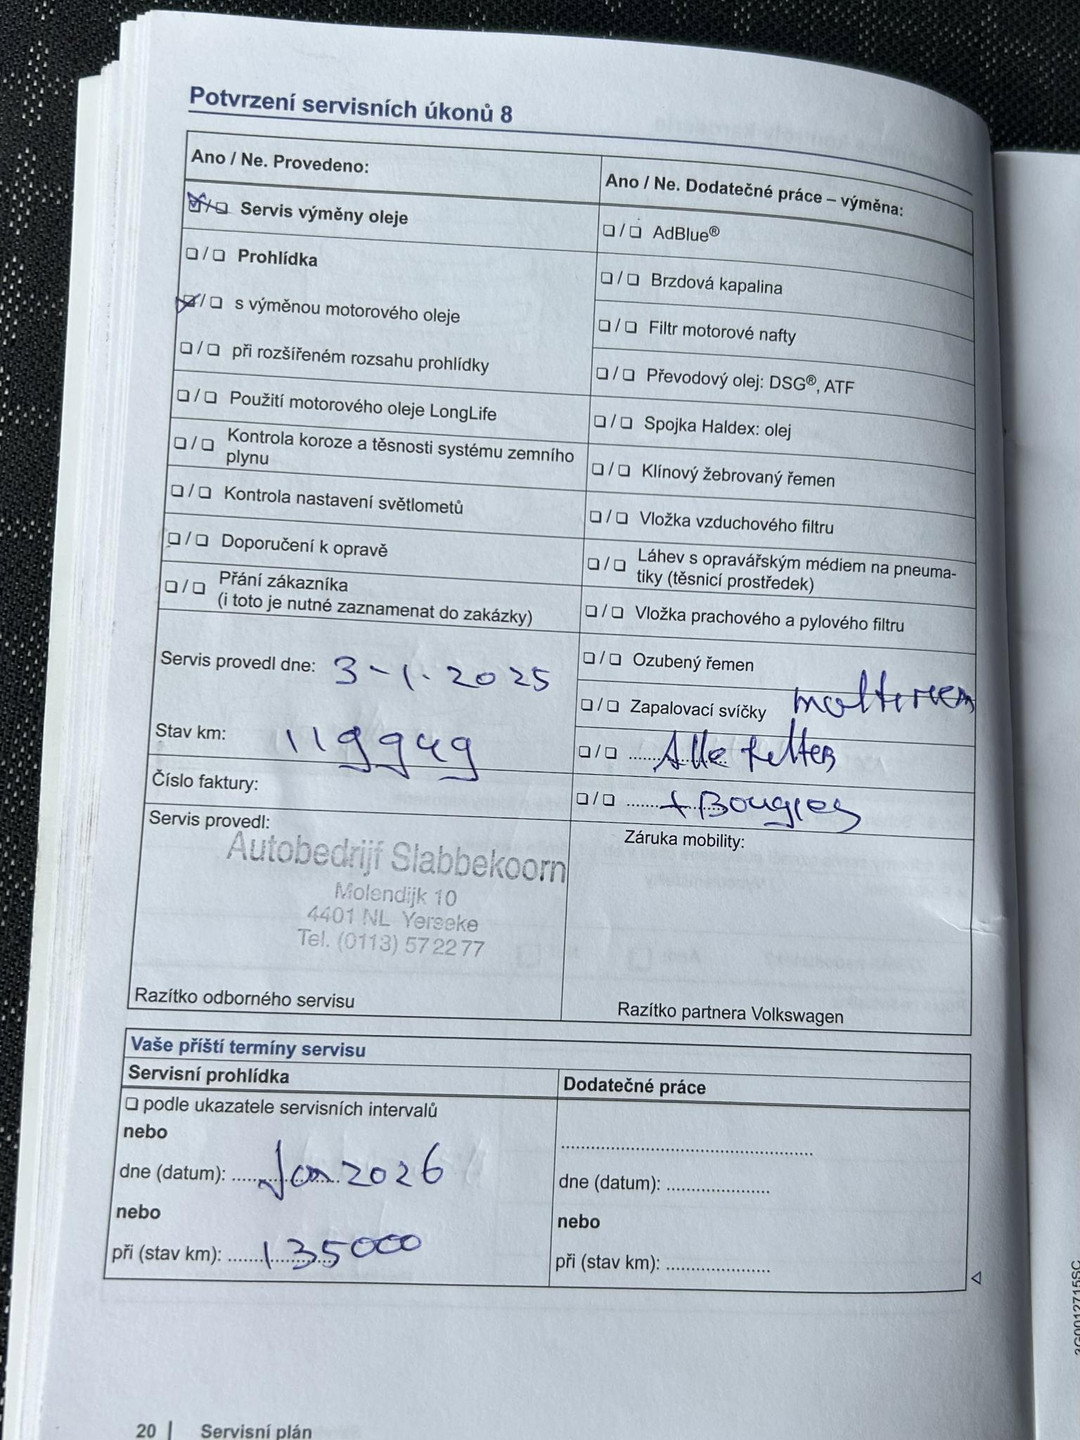 Potvrzení servisních úkonů 8
Ano / Ne. Provedeno:
❑/❑ Servis výměny oleje
❑/❑ Prohlídka
❑/❑ s výměnou motorového oleje
❑/❑ při rozšířeném rozsahu prohlídky
❑/❑ Použití motorového oleje LongLife
❑/❑ Kontrola koroze a těsnosti systému zemního
plynu
❑/❑ Kontrola nastavení světlometů
❑/❑ Doporučení k opravě
❑/❑ Přání zákazníka
(i toto je nutné zaznamenat do zakázky)
Servis provedl dne: 3-1.2025
Stav km: 119949
Číslo faktury:
Servis provedl:
Autobedrijf Slabbekoorn
Molendijk 10
4401 NL Yerseke
Tel. (0113) 57 22 77
Razítko odborného servisu
Ano / Ne. Dodatečné práce – výměna:
❑/❑ AdBlue®
❑/❑ Brzdová kapalina
❑/❑ Filtr motorové nafty
❑/❑ Převodový olej: DSG®, ATF
❑/❑ Spojka Haldex: olej
❑/❑ Klínový žebrovaný řemen
❑/❑ Vložka vzduchového filtru
❑/❑ Láhev s opravářským médiem na pneuma-
tiky (těsnicí prostředek)
❑/❑ Vložka prachového a pylového filtru
❑/❑ Ozubený řemen
❑/❑ Zapalovací svíčky
❑/❑ Alle filters
❑/❑ + Bougies
Záruka mobility:
Razítko partnera Volkswagen
Vaše příští termíny servisu
Servisní prohlídka
❑ podle ukazatele servisních intervalů
nebo
dne (datum): Jan 2026
nebo
při (stav km): 135000
Dodatečné práce
....................
dne (datum): ....................
nebo
při (stav km): ....................
20 | Servisní plán
3G0012715SC